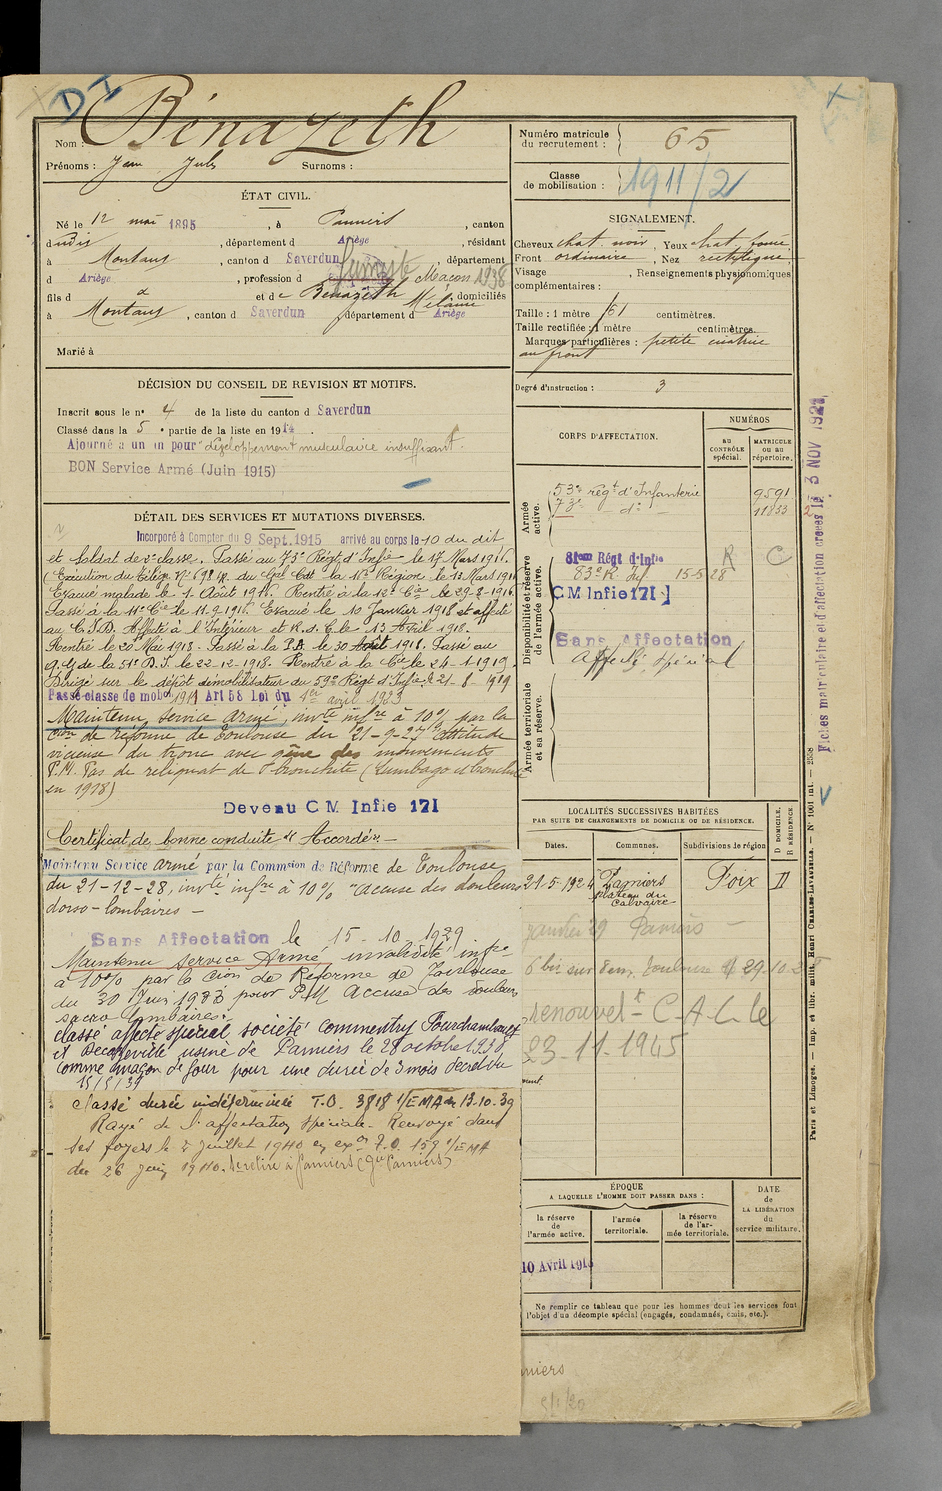 D I
Nom : Bénazeth
Prénoms : Jean Jules Surnoms :
ÉTAT CIVIL.
Né le 12 mai 1895, à Pamiers, canton
dudis, département d Ariège, résidant
à Montaut, canton d Saverdun, département
d Ariège, profession d fumiste Maçon 1938
fils d et de Bénazeth Mélanie, domiciliés
à Montaut, canton d Saverdun département d Ariège
Marié à
DÉCISION DU CONSEIL DE REVISION ET MOTIFS.
Inscrit sous le n° 4 de la liste du canton d Saverdun
Classé dans la 5e partie de la liste en 1914.
Ajourné à un an pour "développement musculaire insuffisant".
BON Service Armé (Juin 1915)
DÉTAIL DES SERVICES ET MUTATIONS DIVERSES.
Incorporé à Compter du 9 Sept. 1915 arrivé au corps le 10 du dit
et Soldat de 2e classe. Passé au 73e Régt d'Infie le 17 Mars 1916.
(Exécution du Télég. N° 698 R. du Gal Cdt la 11e Région le 13 Mars 1916
Evacué malade le 1 Août 1916. Rentré à la 12e Cie le 29-8-1916.
Passé à la 11e Cie le 11-9-1916. Evacué le 10 Janvier 1918 et affecté
au C.I.D. Affecté à l'Intérieur et R.d.C. le 13 Avril 1918.
Rentré le 20 Mai 1918. Passé à la P.A. le 30 Août 1918. Passé au
Q.G. de la 51e D.I. le 22-12-1918. Rentré à la Cie le 24-1-1919.
Dirigé sur le dépôt démobilisateur du 59e Régt d'Infie le 21-8-1919
Passé classe de mobon 1911 Art 58 Loi du 1er avril 1923
Maintenu service armé, invté infre à 10% par la
Cion de réforme de Toulouse du 21-9-27 "attitude
vicieuse du tronc avec gêne des mouvements
P.M. Pas de reliquat de bronchite (Lumbago et bronchite
en 1918)
Devenu C M Infie 171
Certificat de bonne conduite "Accordé" —
Maintenu Service armé par la Commsion de Réforme de Toulouse
du 21-12-28, invté infre à 10% "accuse des douleurs
dorso-lombaires —
Sans Affectation le 15-10-1929
Maintenu service Armé invalidité infre
à 10% par la Cion de Réforme de Toulouse
du 30 Juin 1933 pour P.M Accuse des douleurs
sacro lombaires.
classé affecté spécial société Commentry Fourchambault
et Decazeville usine de Pamiers le 28 octobre 1938
comme maçon de four pour une durée de 3 mois décret du
15/5/39
classé durée indéterminée T.O. 3818 1/EMA du 13-10-39
Rayé de l'affectation spéciale. Renvoyé dans
ses foyers le 5 juillet 1940 en exon J.O. 159 1/EMA
du 26 juin 1940. Se retire à Pamiers
Numéro matricule du recrutement : 65
Classe de mobilisation : 1911/2
SIGNALEMENT.
Cheveux chat. noir, Yeux chat. foncé,
Front ordinaire, Nez rectiligne,
Visage , Renseignements physionomiques
complémentaires :
Taille : 1 mètre 61 centimètres.
Taille rectifiée : 1 mètre centimètres.
Marques particulières : petite cicatrice
au front
Degré d'instruction : 3
CORPS D'AFFECTATION.
NUMÉROS
au CONTRÔLE spécial.
MATRICULE ou au répertoire.
Armée active.
53e régt d'Infanterie 9591
73e — do — 11833
Disponibilité et réserve de l'armée active.
81ème Régt d'Infie R C
83e R. Inf. 15-5 28
CM Infie 171
Sans Affectation
Affecté spécial
Armée territoriale et sa réserve.
LOCALITÉS SUCCESSIVES HABITÉES
PAR SUITE DE CHANGEMENTS DE DOMICILE OU DE RÉSIDENCE.
Dates. Communes. Subdivisions de région
D DOMICILE. R RÉSIDENCE
21-5-1924 Pamiers Foix D
plateau du
Calvaire
janvier 29 Pamiers —
renouvelt - C-A-C- le
23-11-1945
ÉPOQUE
A LAQUELLE L'HOMME DOIT PASSER DANS :
DATE de LA LIBÉRATION du service militaire.
la réserve de l'armée active.
l'armée territoriale.
la réserve de l'armée territoriale.
10 Avril 1918
Ne remplir ce tableau que pour les hommes dont les services font
l'objet d'un décompte spécial (engagés, condamnés, omis, etc.).
miers
Fiches matriculaire et d'affectation créées le 3 NOV 1927
Paris et Limoges. — Imp. et libr. milit. Henri CHARLES-LAVAUZELLE. — N° 1001 int. — 2558